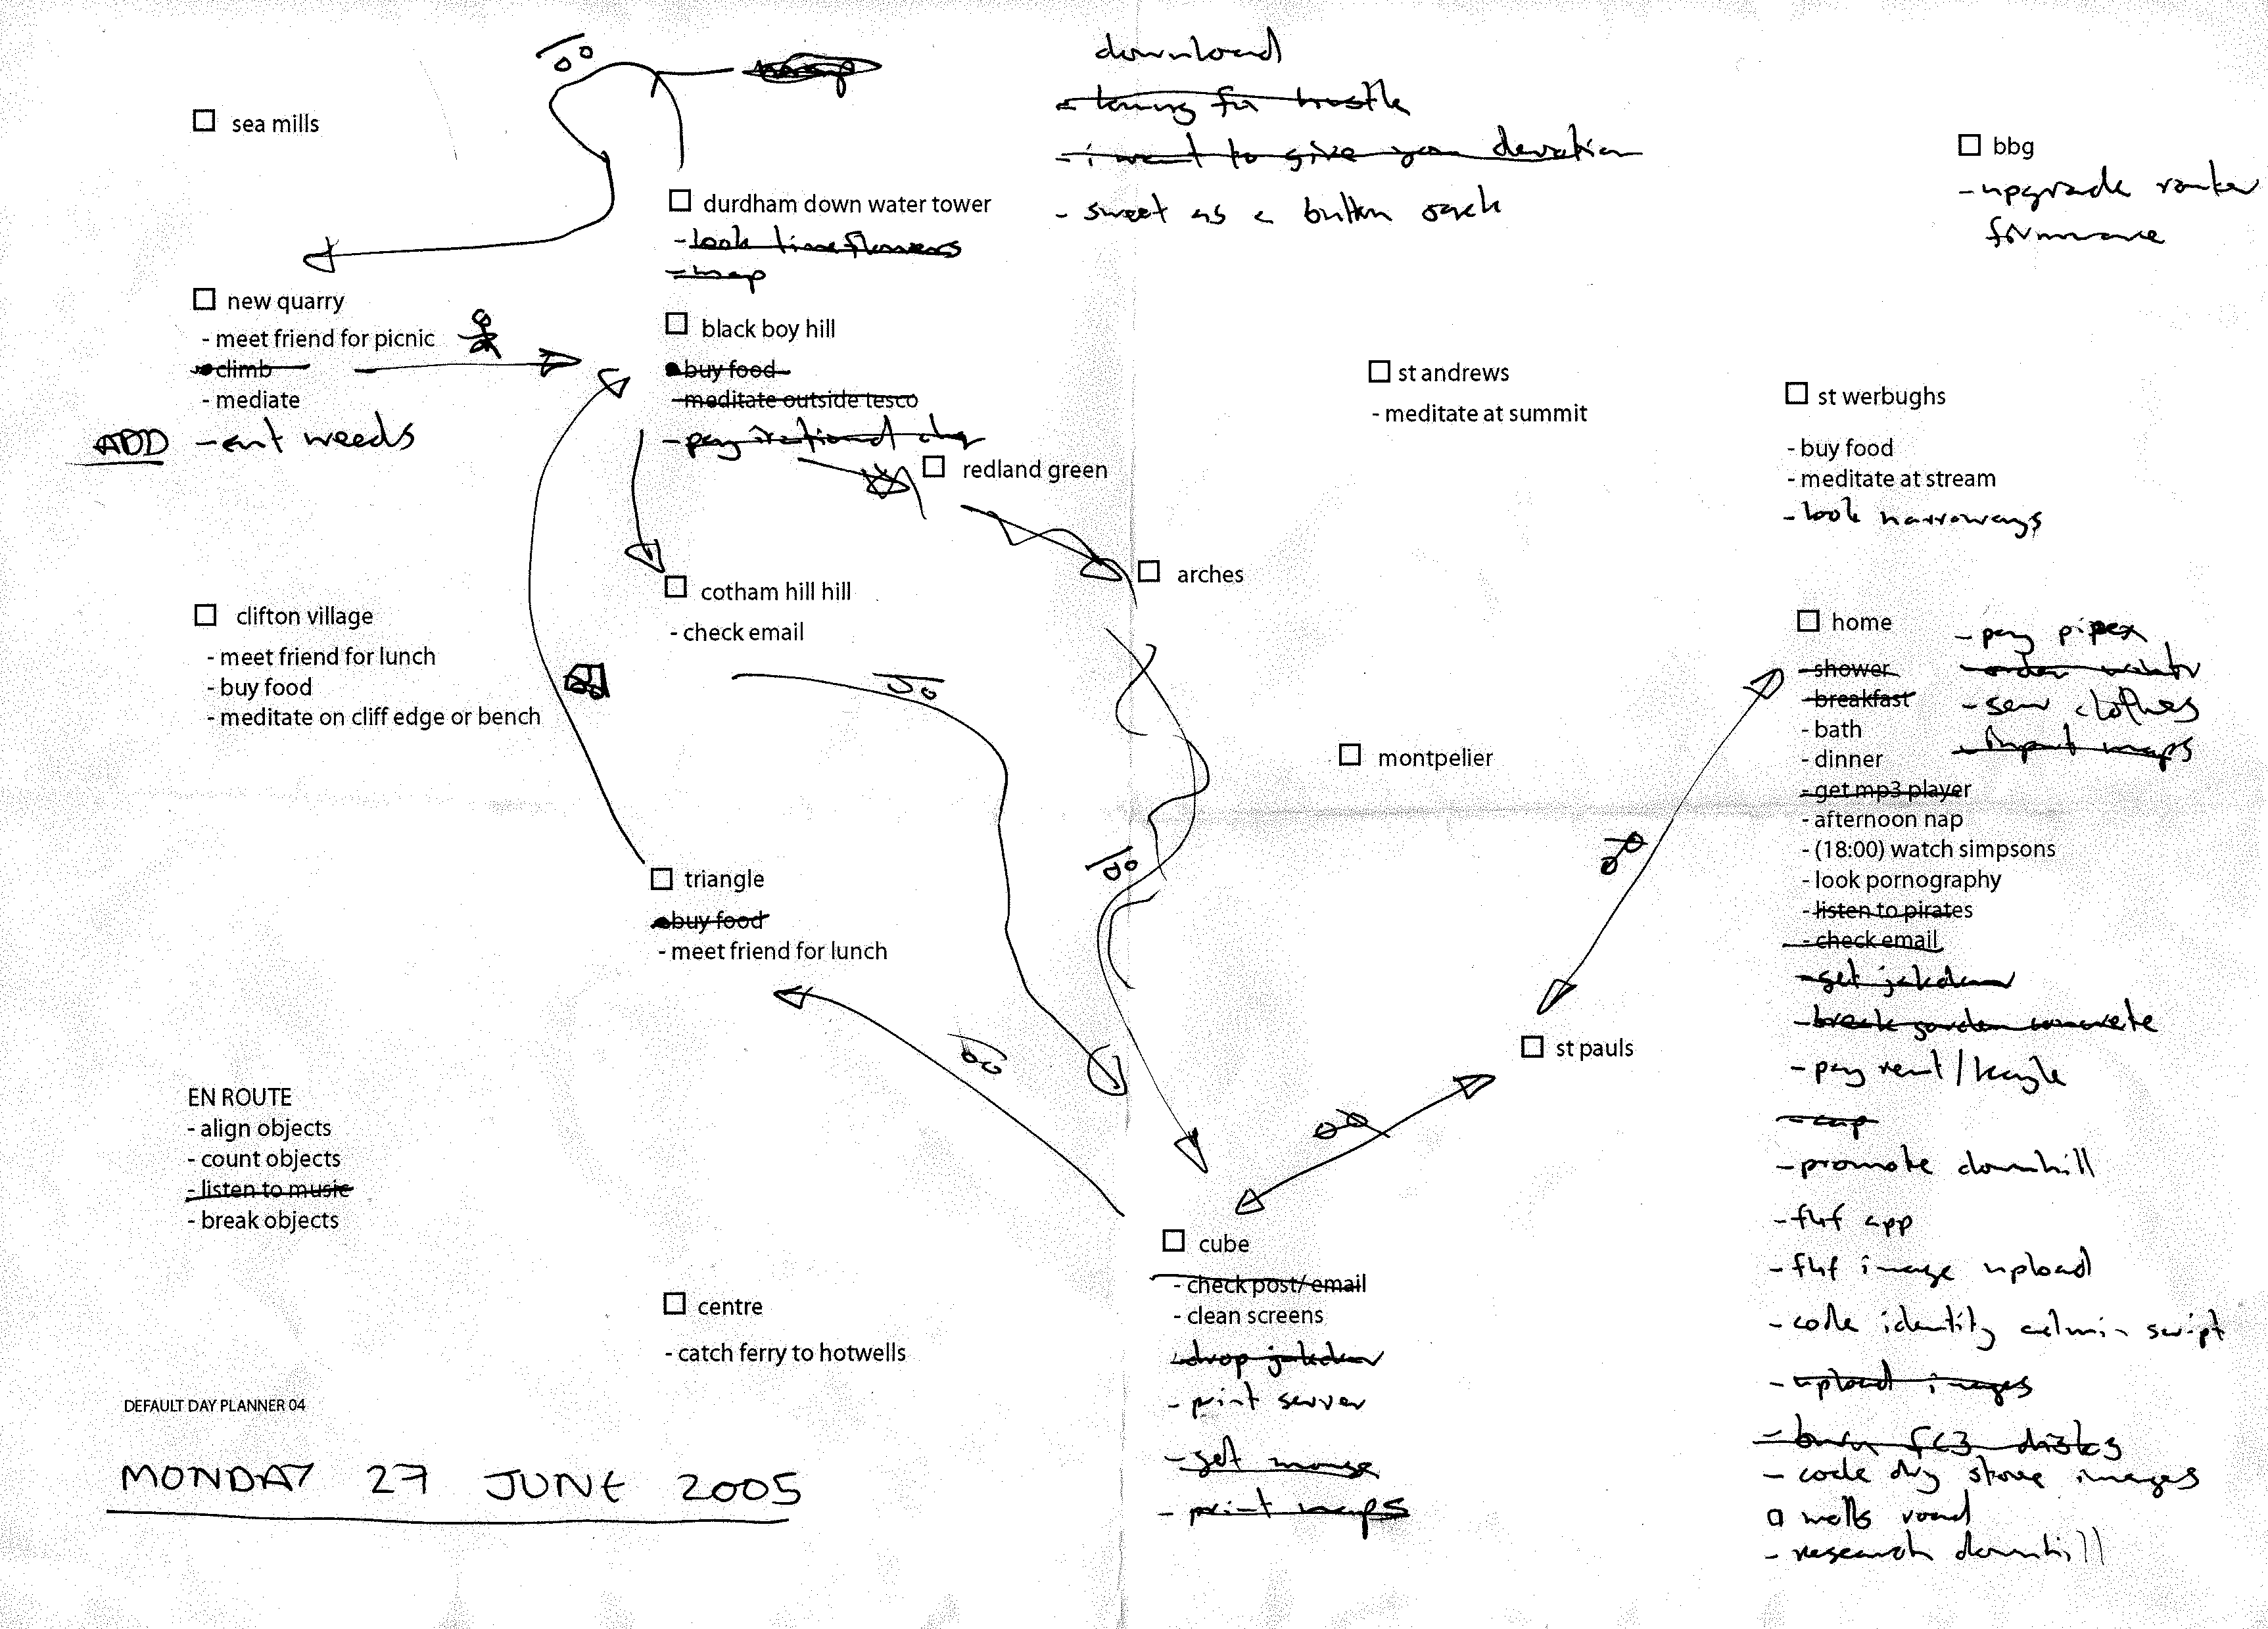 download
sea mills
- i want to give you devotion
bbg
- upgrade router
firmware
durdham down water tower
- sweet as a button
- look lime flowers
- map
new quarry
- meet friend for picnic
- climb
- mediate
ADD - weeds
black boy hill
- buy food
- meditate outside tesco
- pay
redland green
st andrews
- meditate at summit
st werbughs
- buy food
- meditate at stream
- look narroways
arches
cotham hill hill
- check email
clifton village
- meet friend for lunch
- buy food
- meditate on cliff edge or bench
home
- shower
- breakfast
- bath
- dinner
- get mp3 player
- afternoon nap
- (18:00) watch simpsons
- look pornography
- listen to pirates
- check email
- get
- break garden concrete
- pay rent/
- promote downhill
- fhf app
- fhf image upload
- code identity admin script
- upload images
- burn fc3 disks
- code dry stone images
wells road
- research downhill
- pay pipex
- order
- sew clothes
- input maps
montpelier
triangle
- buy food
- meet friend for lunch
st pauls
EN ROUTE
- align objects
- count objects
- listen to music
- break objects
cube
- check post/email
- clean screens
- drop
- print server
- get mouse
- print maps
centre
- catch ferry to hotwells
DEFAULT DAY PLANNER 04
MONDAY 27 JUNE 2005